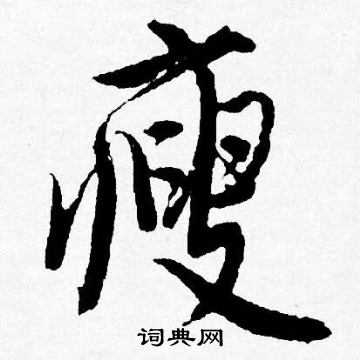 瘦
词典网